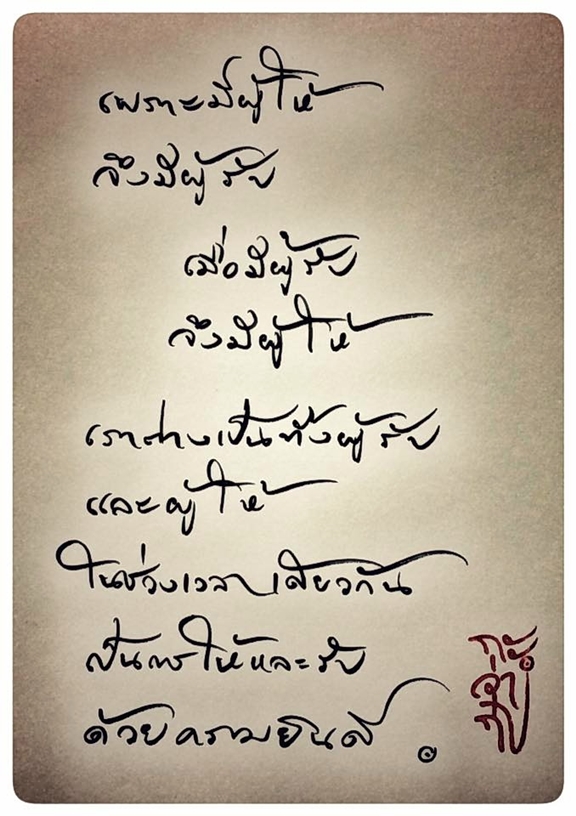 เพราะมีผู้ให้
จึงมีผู้รับ
เมื่อมีผู้รับ
จึงมีผู้ให้
เราต่างเป็นทั้งผู้รับ
และผู้ให้
ในช่วงเวลาเดียวกัน
เป็นการให้และรับ
ด้วยความยินดี